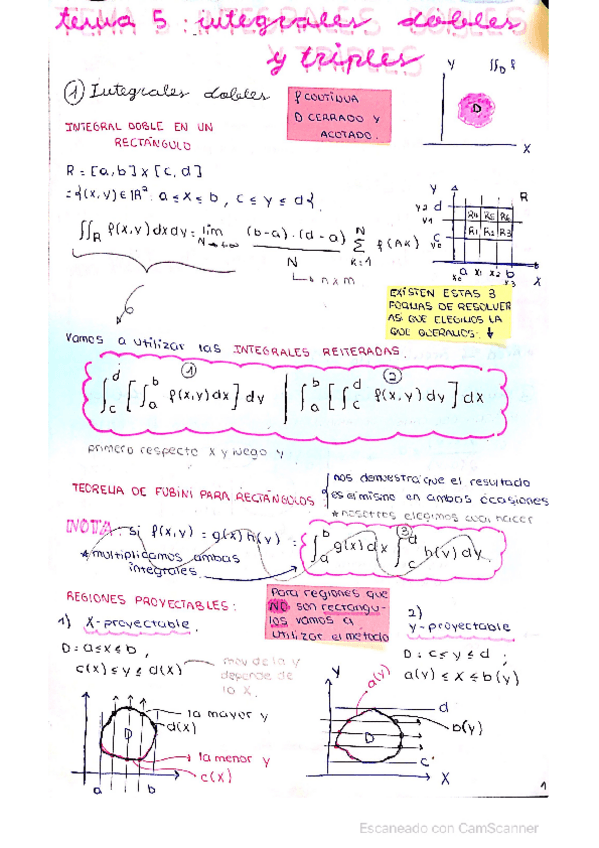 tema 5: integrales dobles
y triples
① Integrales dobles
f CONTINUA
D CERRADO Y
ACOTADO.
Y
∬D f
D
X
INTEGRAL DOBLE EN UN
RECTÁNGULO
R = [a,b] x [c,d]
= {(x,y) ∈ ℝ². a ≤ x ≤ b, c ≤ y ≤ d}.
∬R f(x,y) dx dy = lim N→+∞ (b-a)·(d-a)/N Σ K=1 N f(AK)
n x m
Y
R
y2 d
y1
c
y0
R4 R5 R6
R1 R2 R3
a x1 x2 b
x0 x3 X
EXISTEN ESTAS 3
FORMAS DE RESOLVER
ASI QUE ELEGIMOS LA
QUE QUERAMOS. ↓
Vamos a utilizar las INTEGRALES REITERADAS.
① ②
∫c d [∫a b f(x,y) dx] dy | ∫a b [∫c d f(x,y) dy] dx
primero respecto x y luego y
TEOREMA DE FUBINI PARA RECTÁNGULOS
nos demuestra que el resultado
es el mismo en ambas ocasiones
* nosotros elegimos cual hacer
NOTA: si f(x,y) = g(x) h(y) = ∫a b g(x) dx ∫c d h(y) dy
③
* multiplicamos ambas
integrales
REGIONES PROYECTABLES:
Para regiones que
NO son rectangu-
los vamos a
utilizar el método
1) X-proyectable.
D: a ≤ x ≤ b,
c(x) ≤ y ≤ d(x)
depende de
la x.
la mayor y
d(x)
D
la menor y
c(x)
a b
2)
y-proyectable
D: c ≤ y ≤ d ;
a(y) ≤ x ≤ b(y)
Y
a(y)
d
b(y)
D
c
X
1
Escaneado con CamScanner